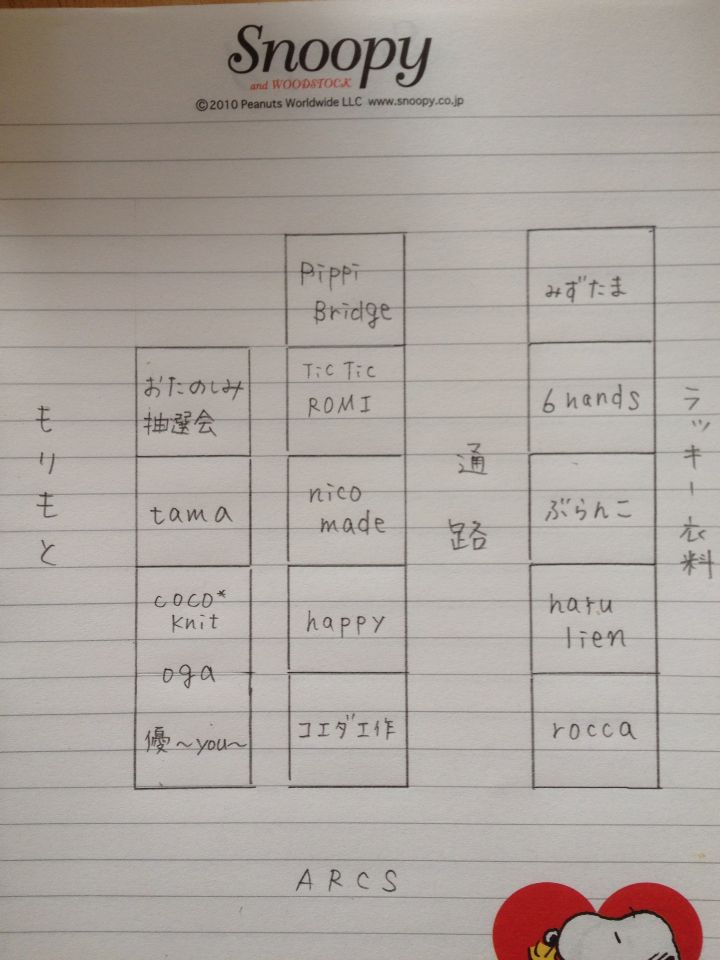 Snoopy
and WOODSTOCK
©2010 Peanuts Worldwide LLC www.snoopy.co.jp
もりもと
おたのしみ
抽選会
tama
coco*
knit
oga
優〜you〜
Pippi
Bridge
Tic Tic
ROMI
nico
made
happy
コエダ工作
通路
みずたま
6 hands
ぶらんこ
haru
lien
rocca
ラッキー衣料
ARCS